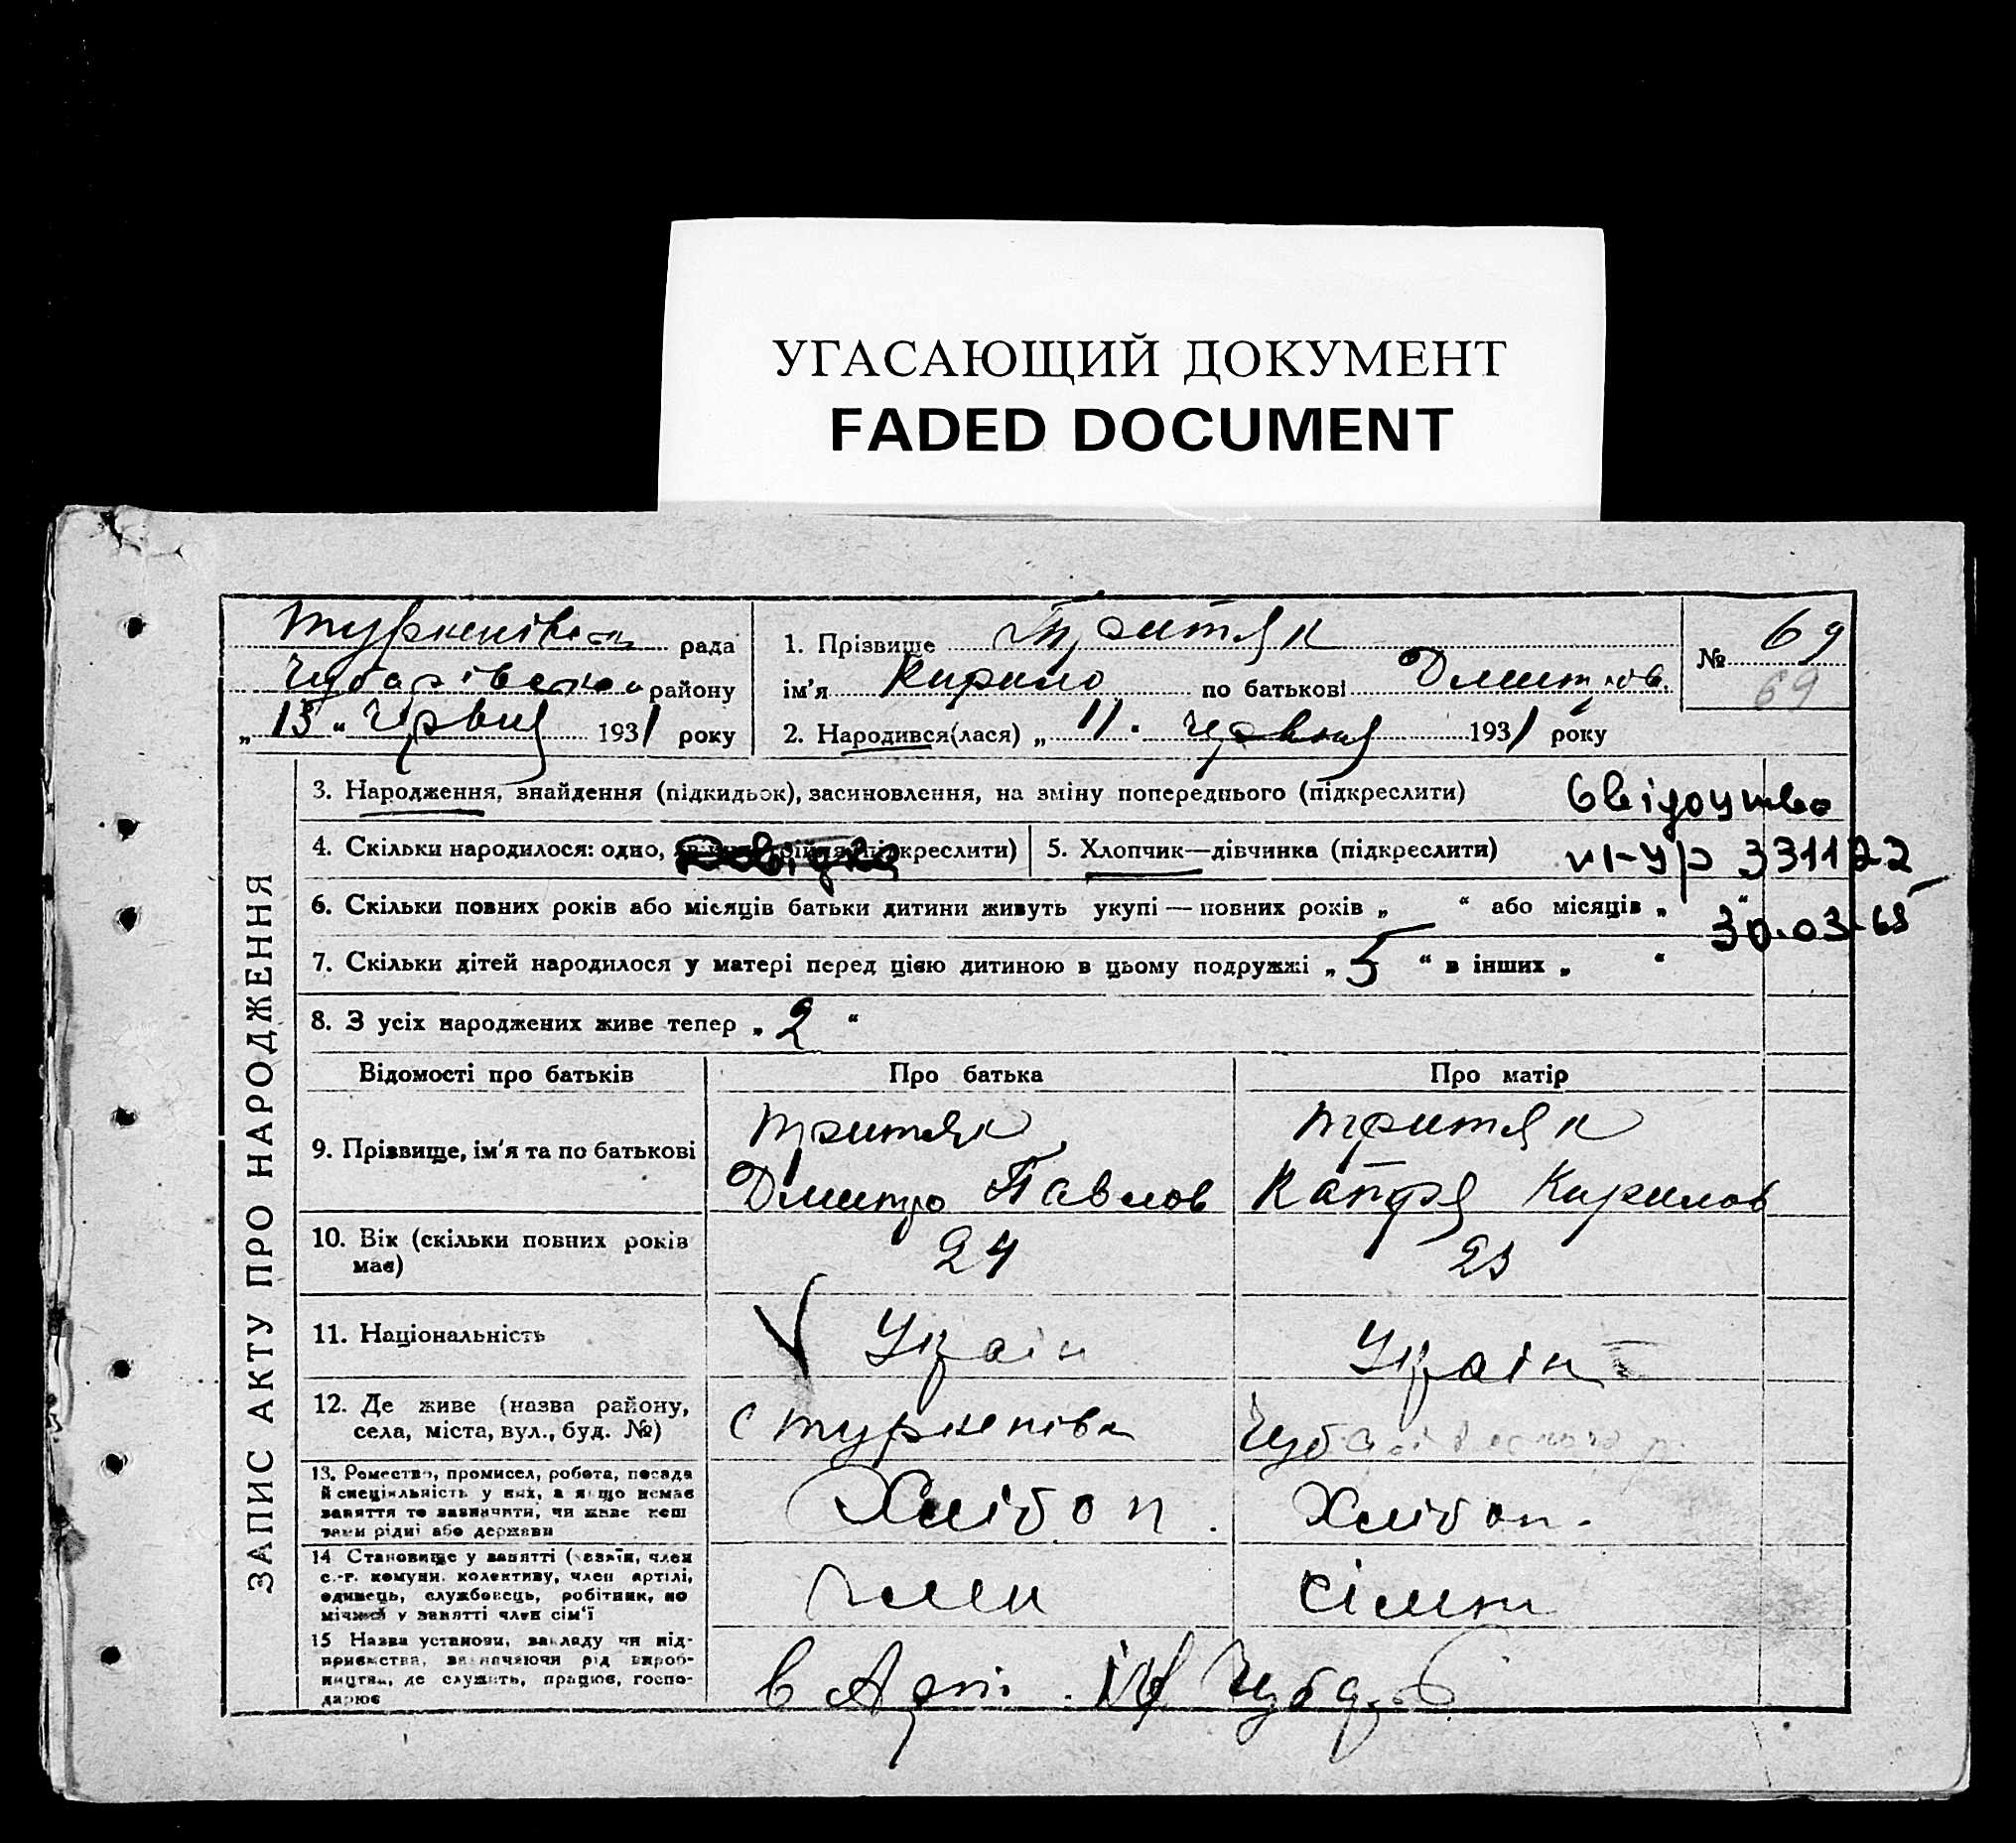 УГАСАЮЩИЙ ДОКУМЕНТ
FADED DOCUMENT
ЗАПИС АКТУ ПРО НАРОДЖЕННЯ
рада
району
„ 13 “ Червня 1931 року
1. Прізвище Притяк
ім'я Кирило по батькові Дмитров.
2. Народився(лася) „ 11 . Червня 1931 року
№ 69
69
3. Народження, знайдення (підкидьок), засиновлення, на зміну попереднього (підкреслити)
Свідоцтво
4. Скільки народилося: одно, (підкреслити)
5. Хлопчик—дівчинка (підкреслити)
VI-УР 331122
6. Скільки повних років або місяців батьки дитини живуть укупі — повних років „ “ або місяців „ “
30.03.65
7. Скільки дітей народилося у матері перед цією дитиною в цьому подружжі „ 5 “ в інших „ “
8. З усіх народжених живе тепер „ 2 “
Відомості про батьків Про батька Про матір
9. Прізвище, ім'я та по батькові
Притяк Притяк
Дмитро Павлов Катря Кирилов
10. Вік (скільки повних років має)
24 23
11. Національність
Украін Украін
12. Де живе (назва району, села, міста, вул., буд. №)
с Туркенівка
13. Ремество, промисел, робота, посада й спеціяльність у них, а якщо немає заняття то зазначити, чи живе кеш тами рідні або держави
Хлібоп. Хлібоп.
14 Становище у занятті (хазяїн, член с.-г. комуни. колективу, член артілі, одинець, службовець, робітник, по мічний у занятті член сім'ї
член сімт
15 Назва установи, закладу чи підприємства, зазначаючи рід виробництва, де служить, працює, господарює
в Арт.